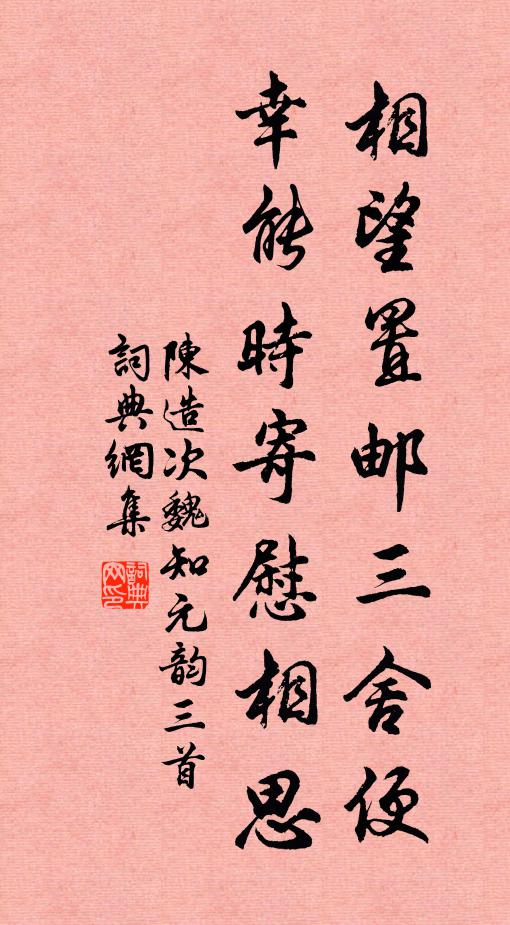 相望置邮三舍便
幸能時寄慰相思
陳造次魏知元韵三首
詞典網集
詞典網印